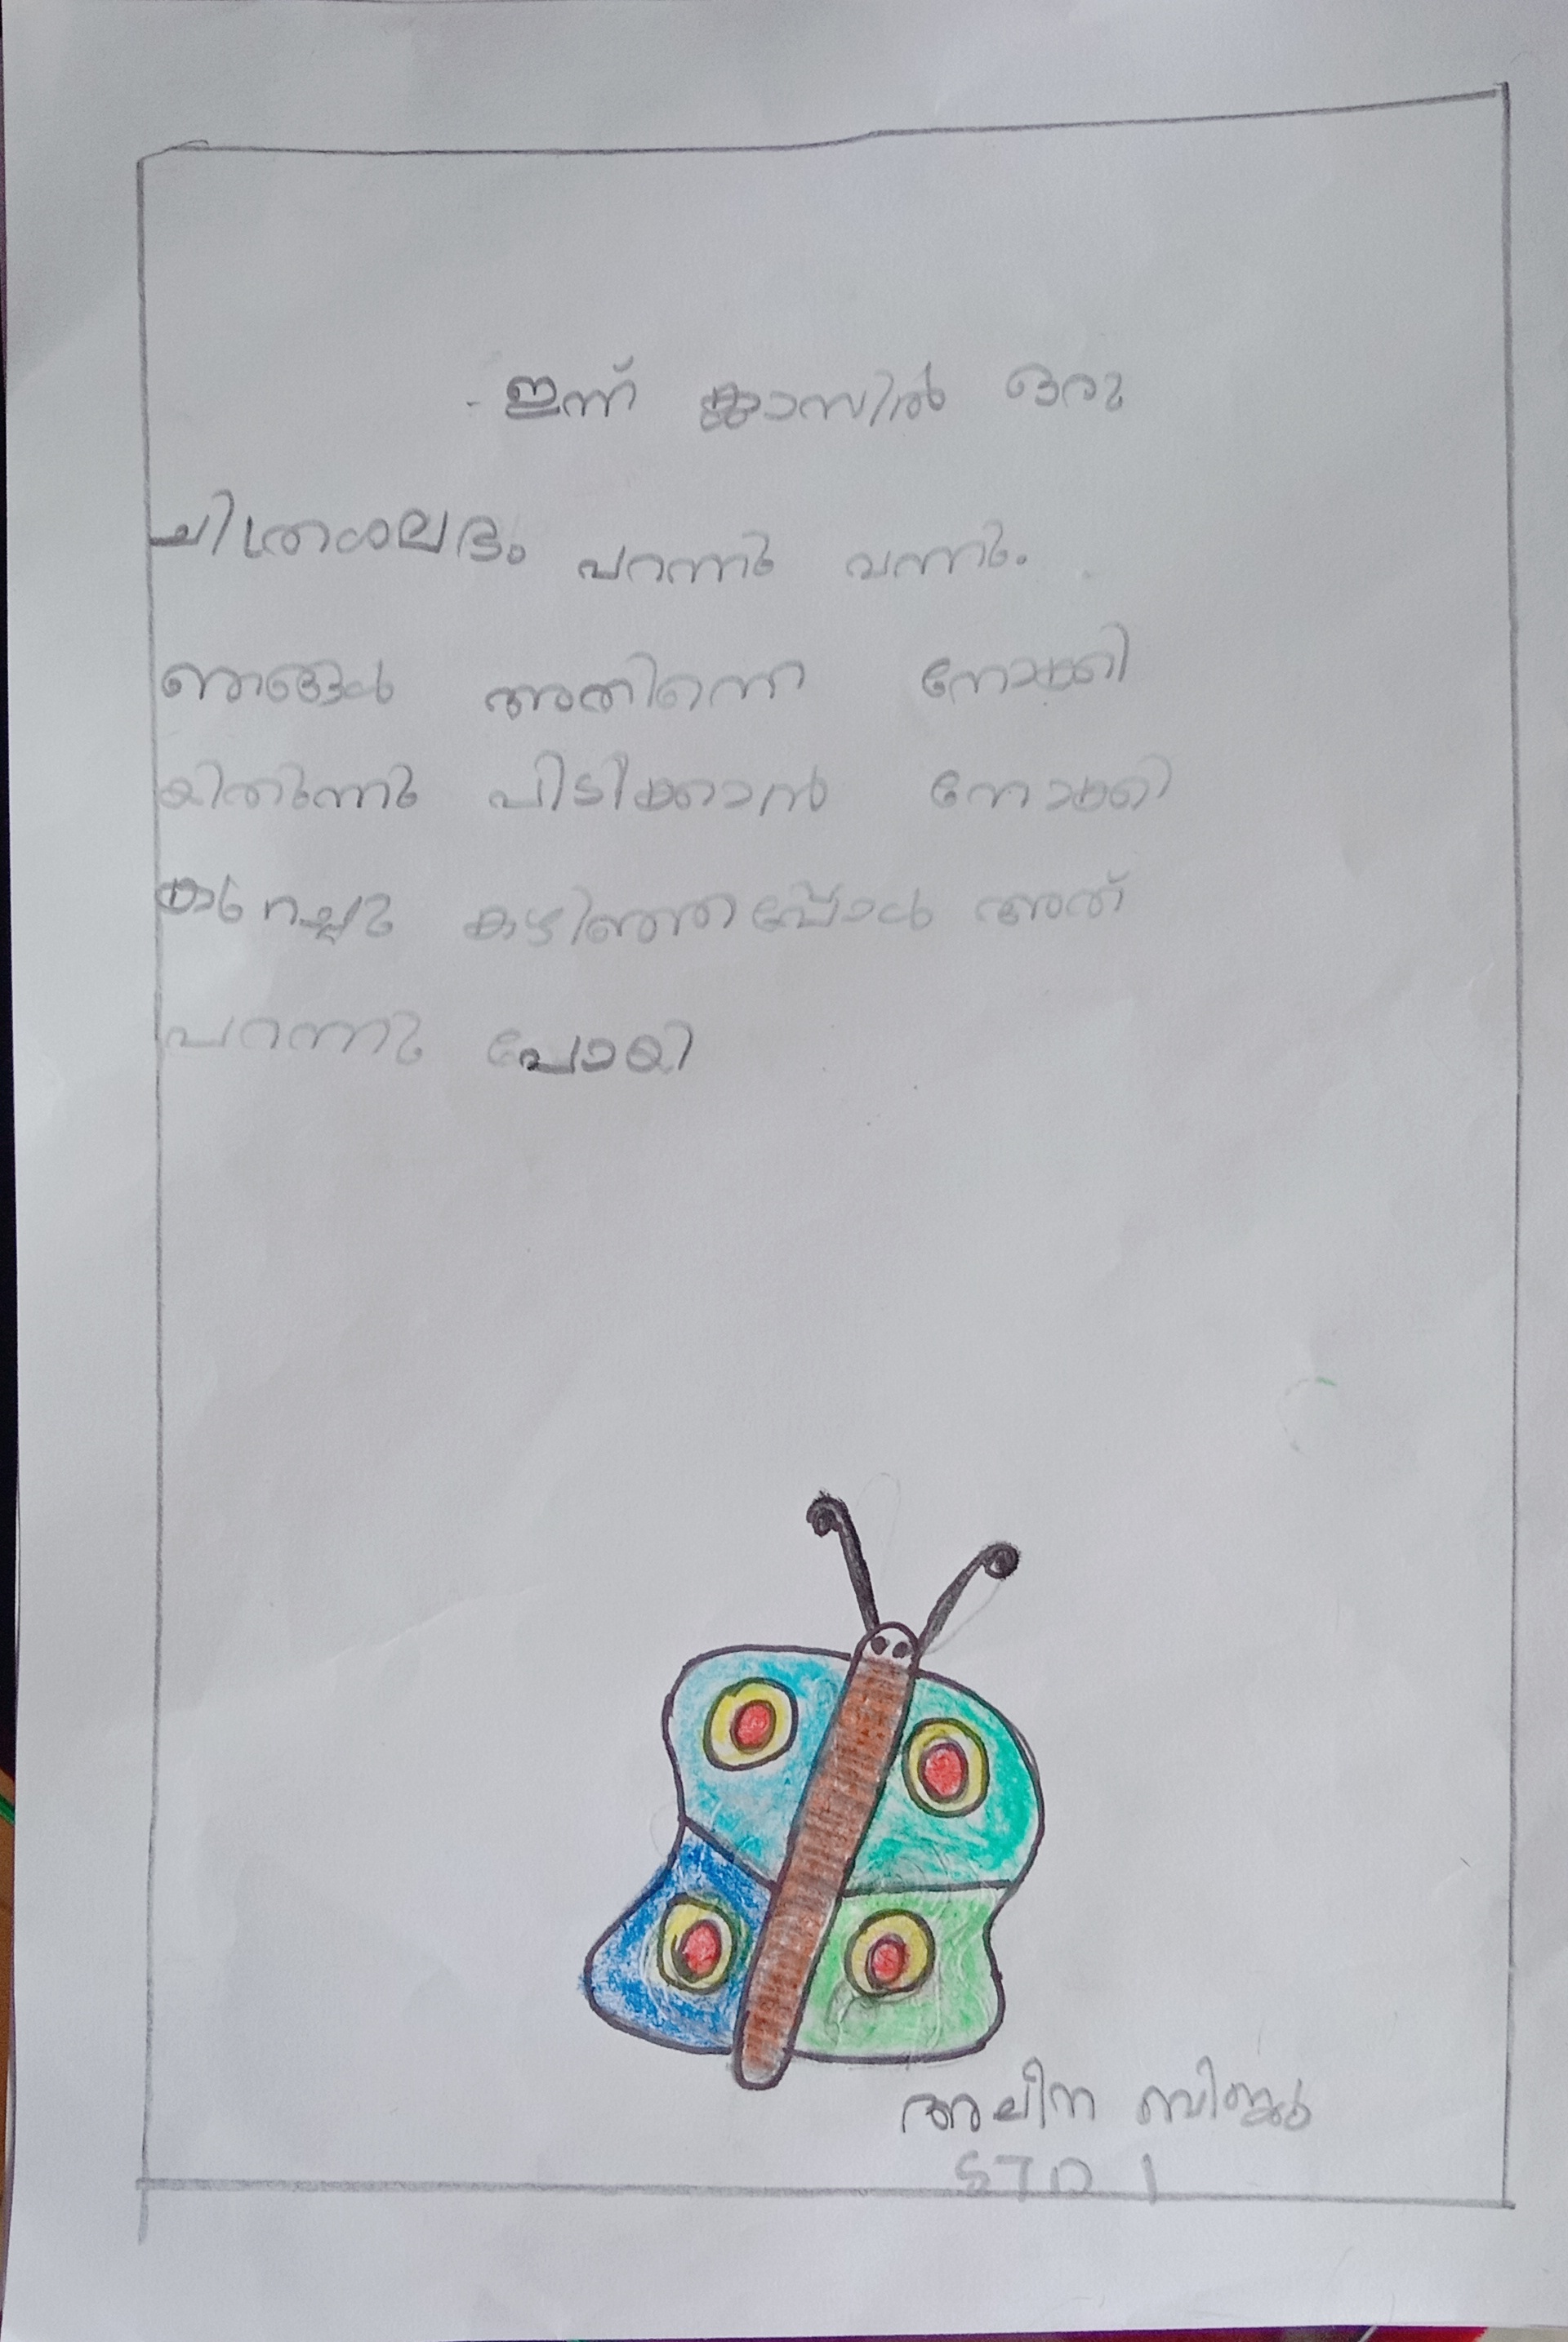 ഇന്ന് ക്ലാസിൽ ഒരു
ചിത്രശലഭം പറന്നു വന്നു.
ഞങ്ങൾ അതിനെ നോക്കി
യിരുന്നു പിടിക്കാൻ നോക്കി
കുറച്ചു കഴിഞ്ഞപ്പോൾ അത്
പറന്നു പോയി
അലീന
STD 1